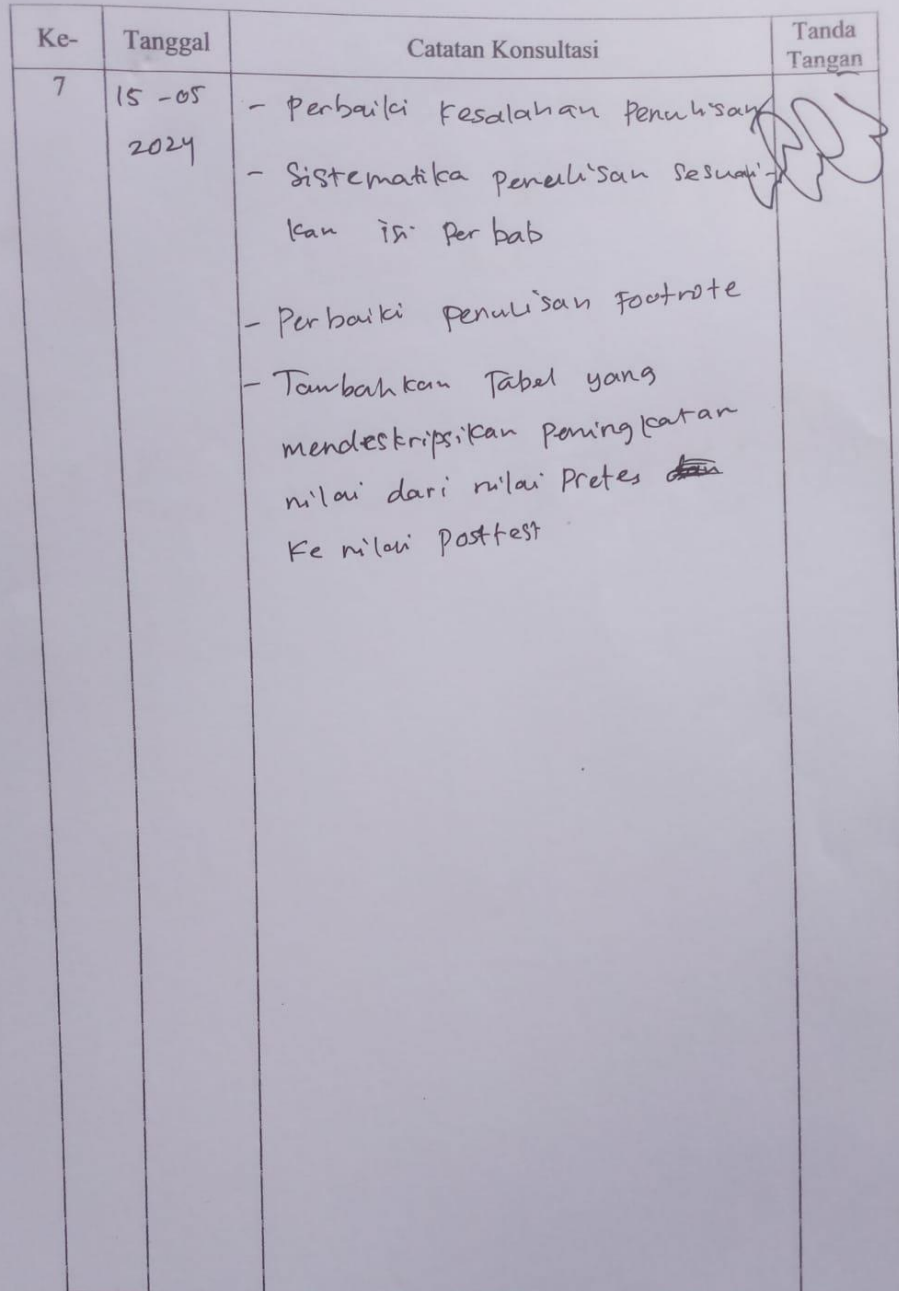 Ke- Tanggal Catatan Konsultasi Tanda Tangan
7 15 -05 2024
- Perbaiki Kesalahan Penulisan
- Sistematika penulisan sesuai-
kan isi Per bab
- Perbaiki penulisan Footnote
- Tambahkan Tabel yang
mendeskripsikan peningkatan
nilai dari nilai Pretes
Ke nilai Posttest